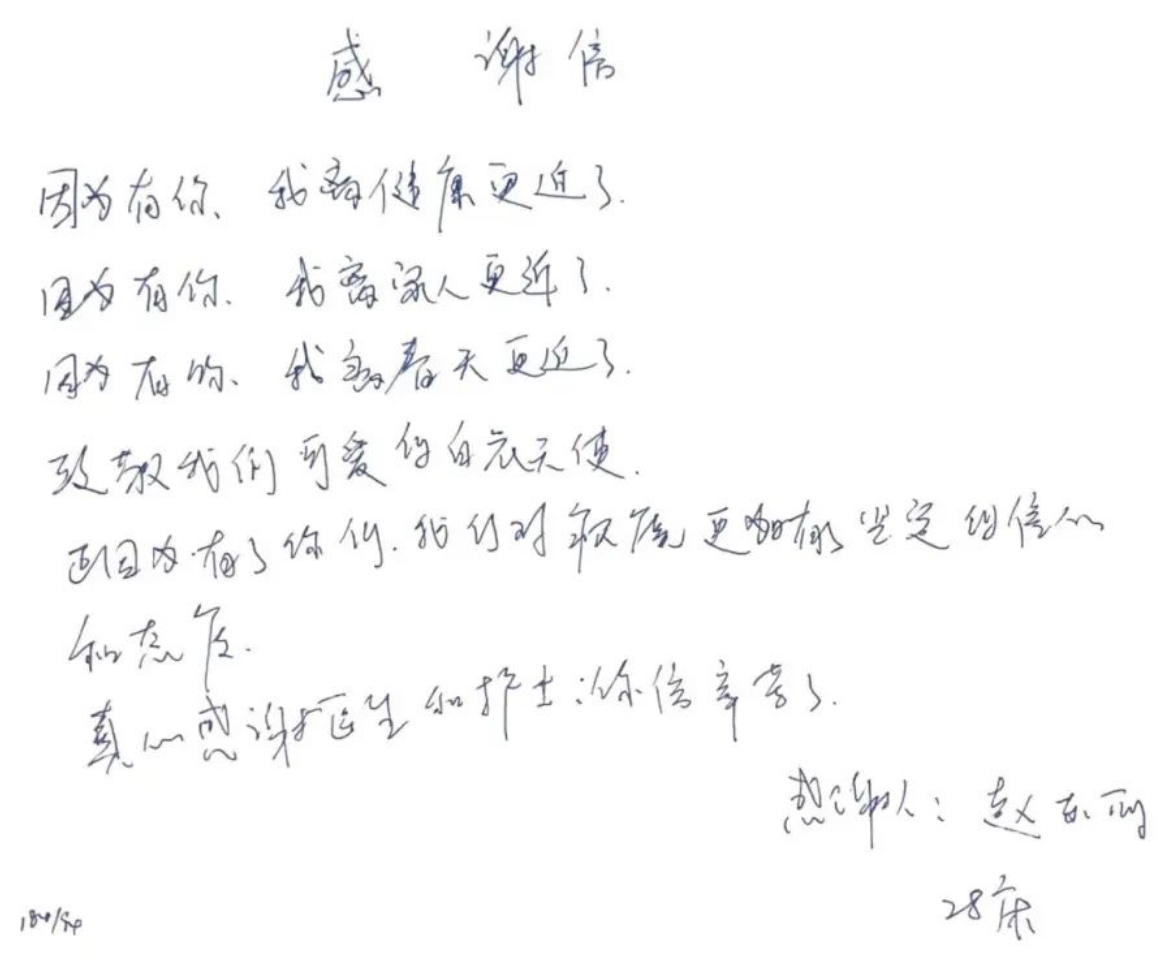 感谢信
因为有你、我离健康更近了.
因为有你、我离家人更近了.
因为有你、我离春天更近了.
致敬我们可爱的白衣天使.
正因为有了你们.我们对抗疫更加有了坚定的信心
和态度.
真心感谢医生和护士:你们辛苦了.
感谢人:赵东丽
28床